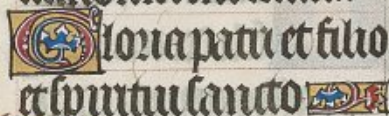 Gloria patri et filio
et spiritui sancto